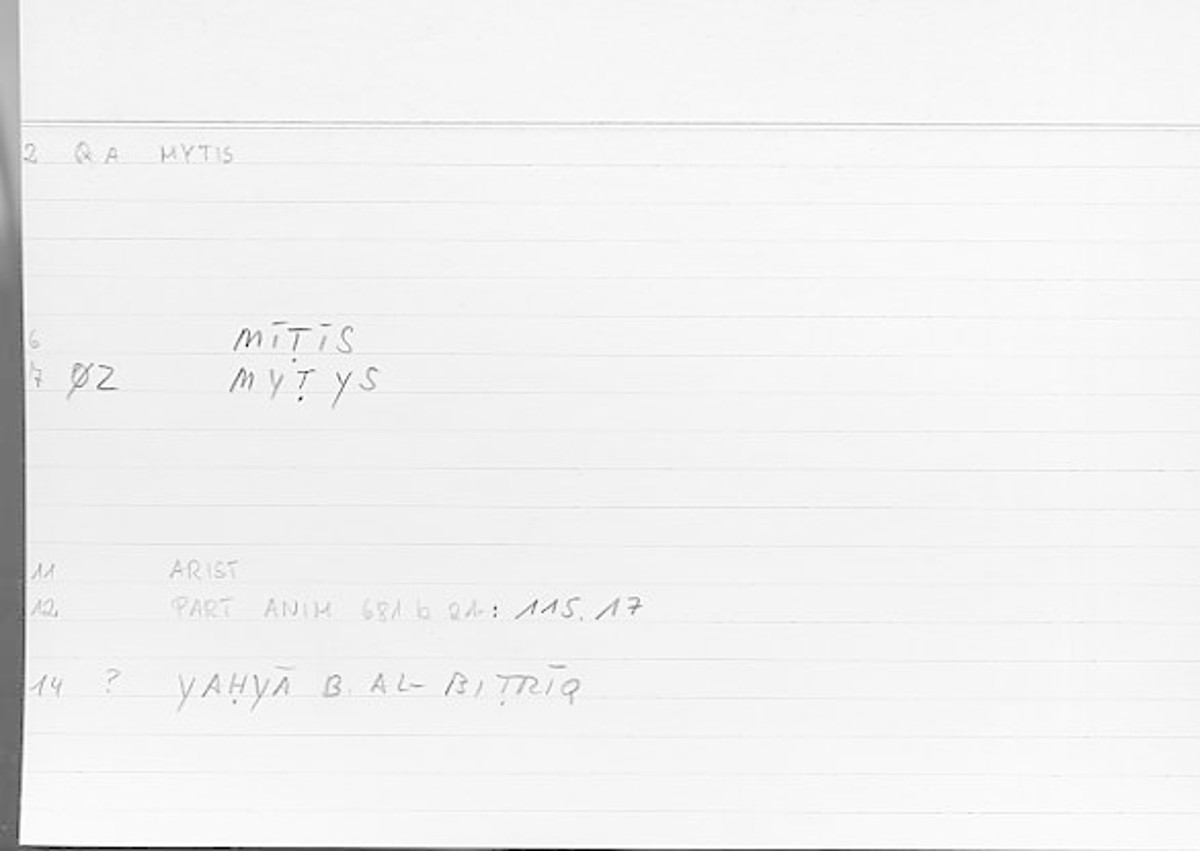 2 QA MYTIS
6 MĪṬĪS
7 ØZ MYṬYS
11 ARIST
12 PART ANIM 681 b 21: 115.17
14 ? YAḤYĀ B. AL-BIṬRĪQ